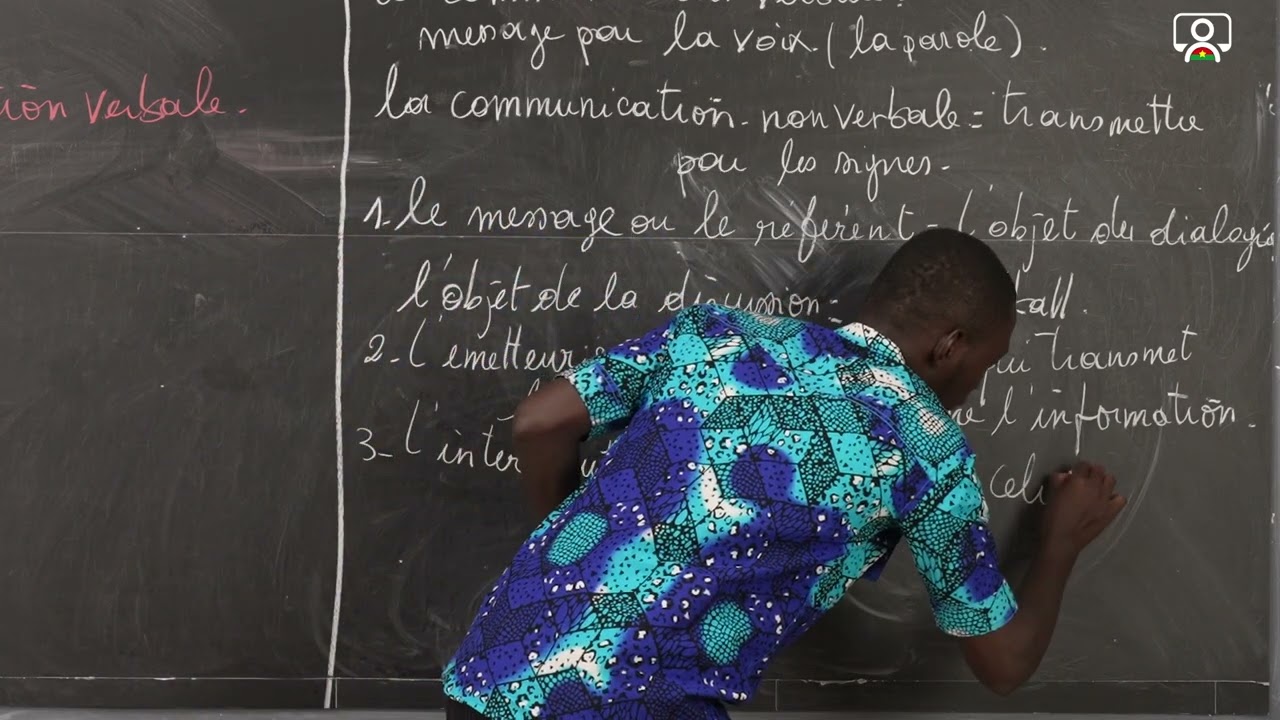 tion verbale.
message par la voix. (la parole).
la communication - non verbale = transmettre
par les signes.
1. le message ou le référent = l'objet du dialogue
l'objet de la discussion =
2 - l'emetteur qui transmet
l'information.
3 - l'inter celu